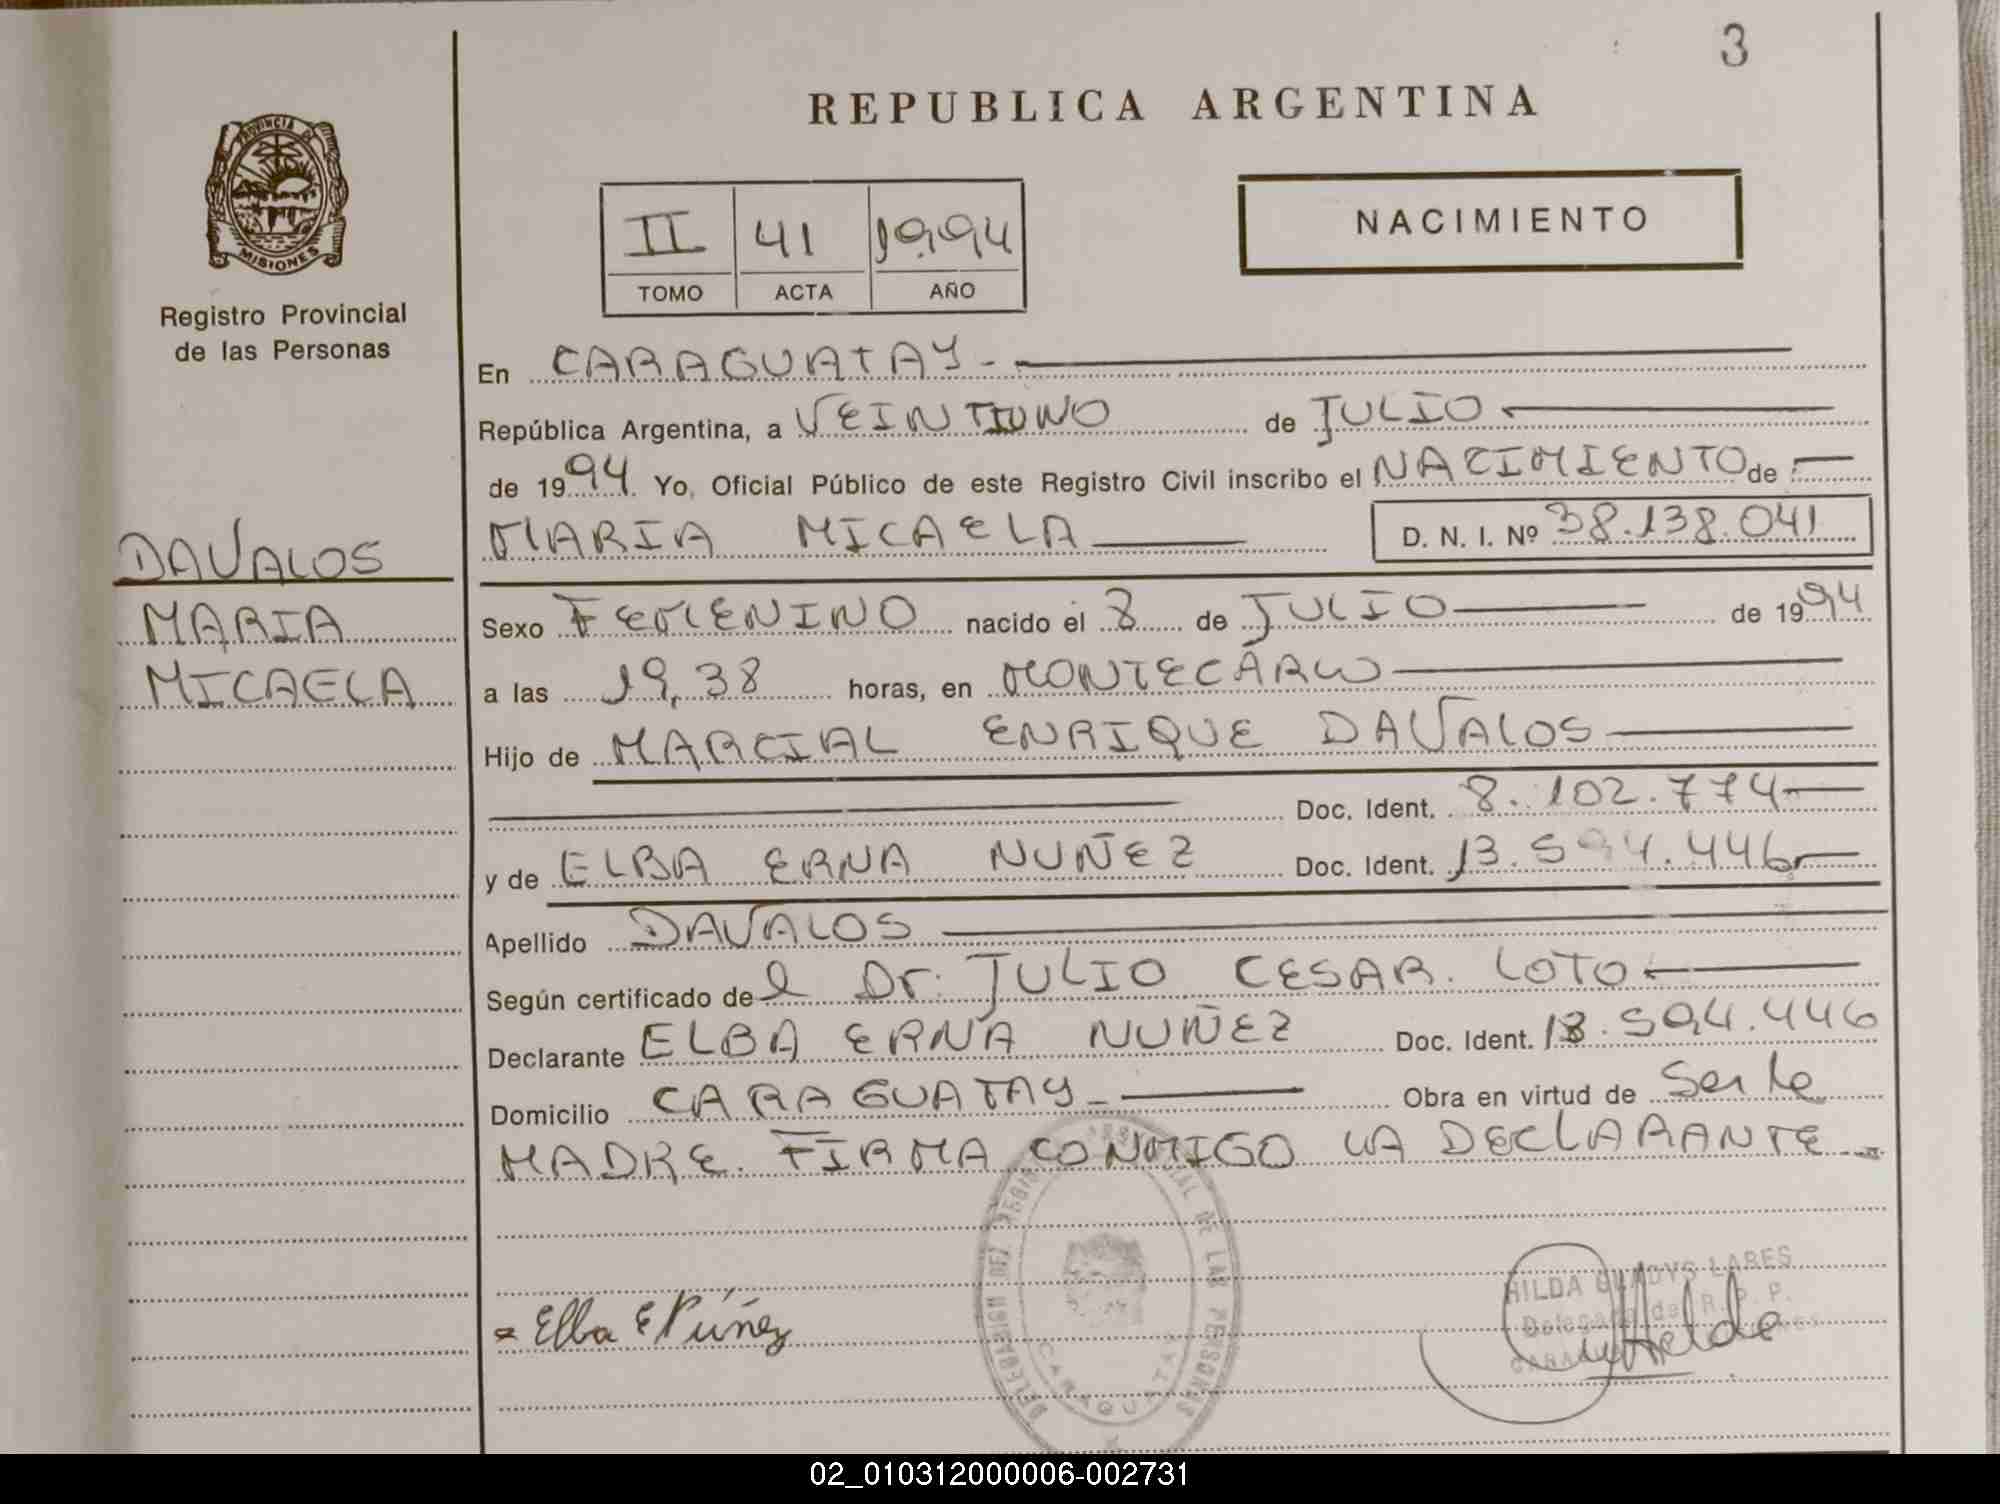 3
REPUBLICA ARGENTINA
PROVINCIA DE
MISIONES
Registro Provincial
de las Personas
II 41 1994
TOMO ACTA AÑO
NACIMIENTO
En CARAGUATAY.
República Argentina, a VEINTIUNO de JULIO
de 1994. Yo, Oficial Público de este Registro Civil inscribo el NACIMIENTO de
MARIA MICAELA D. N. I. Nº 38.138.041
DAVALOS
MARIA
MICAELA
Sexo FEMENINO nacido el 8 de JULIO de 1994
a las 19,38 horas, en MONTECÁRLO
Hijo de MARCIAL ENRIQUE DAVALOS
Doc. Ident. 8.102.774
y de ELBA ERNA NUÑEZ Doc. Ident. 13.594.446
Apellido DAVALOS
Según certificado del Dr. JULIO CESAR. LOTO
Declarante ELBA ERNA NUÑEZ Doc. Ident. 13.594.446
Domicilio CARAGUATAY Obra en virtud de Ser la
MADRE. FIRMA CONMIGO LA DECLARANTE
DELEGACION DEL REGISTRO PROVINCIAL DE LAS PERSONAS
CARAGUATAY
Elba E Núñez
HILDA GLADYS LARES
Delegada del R. P. P.
02_010312000006-002731